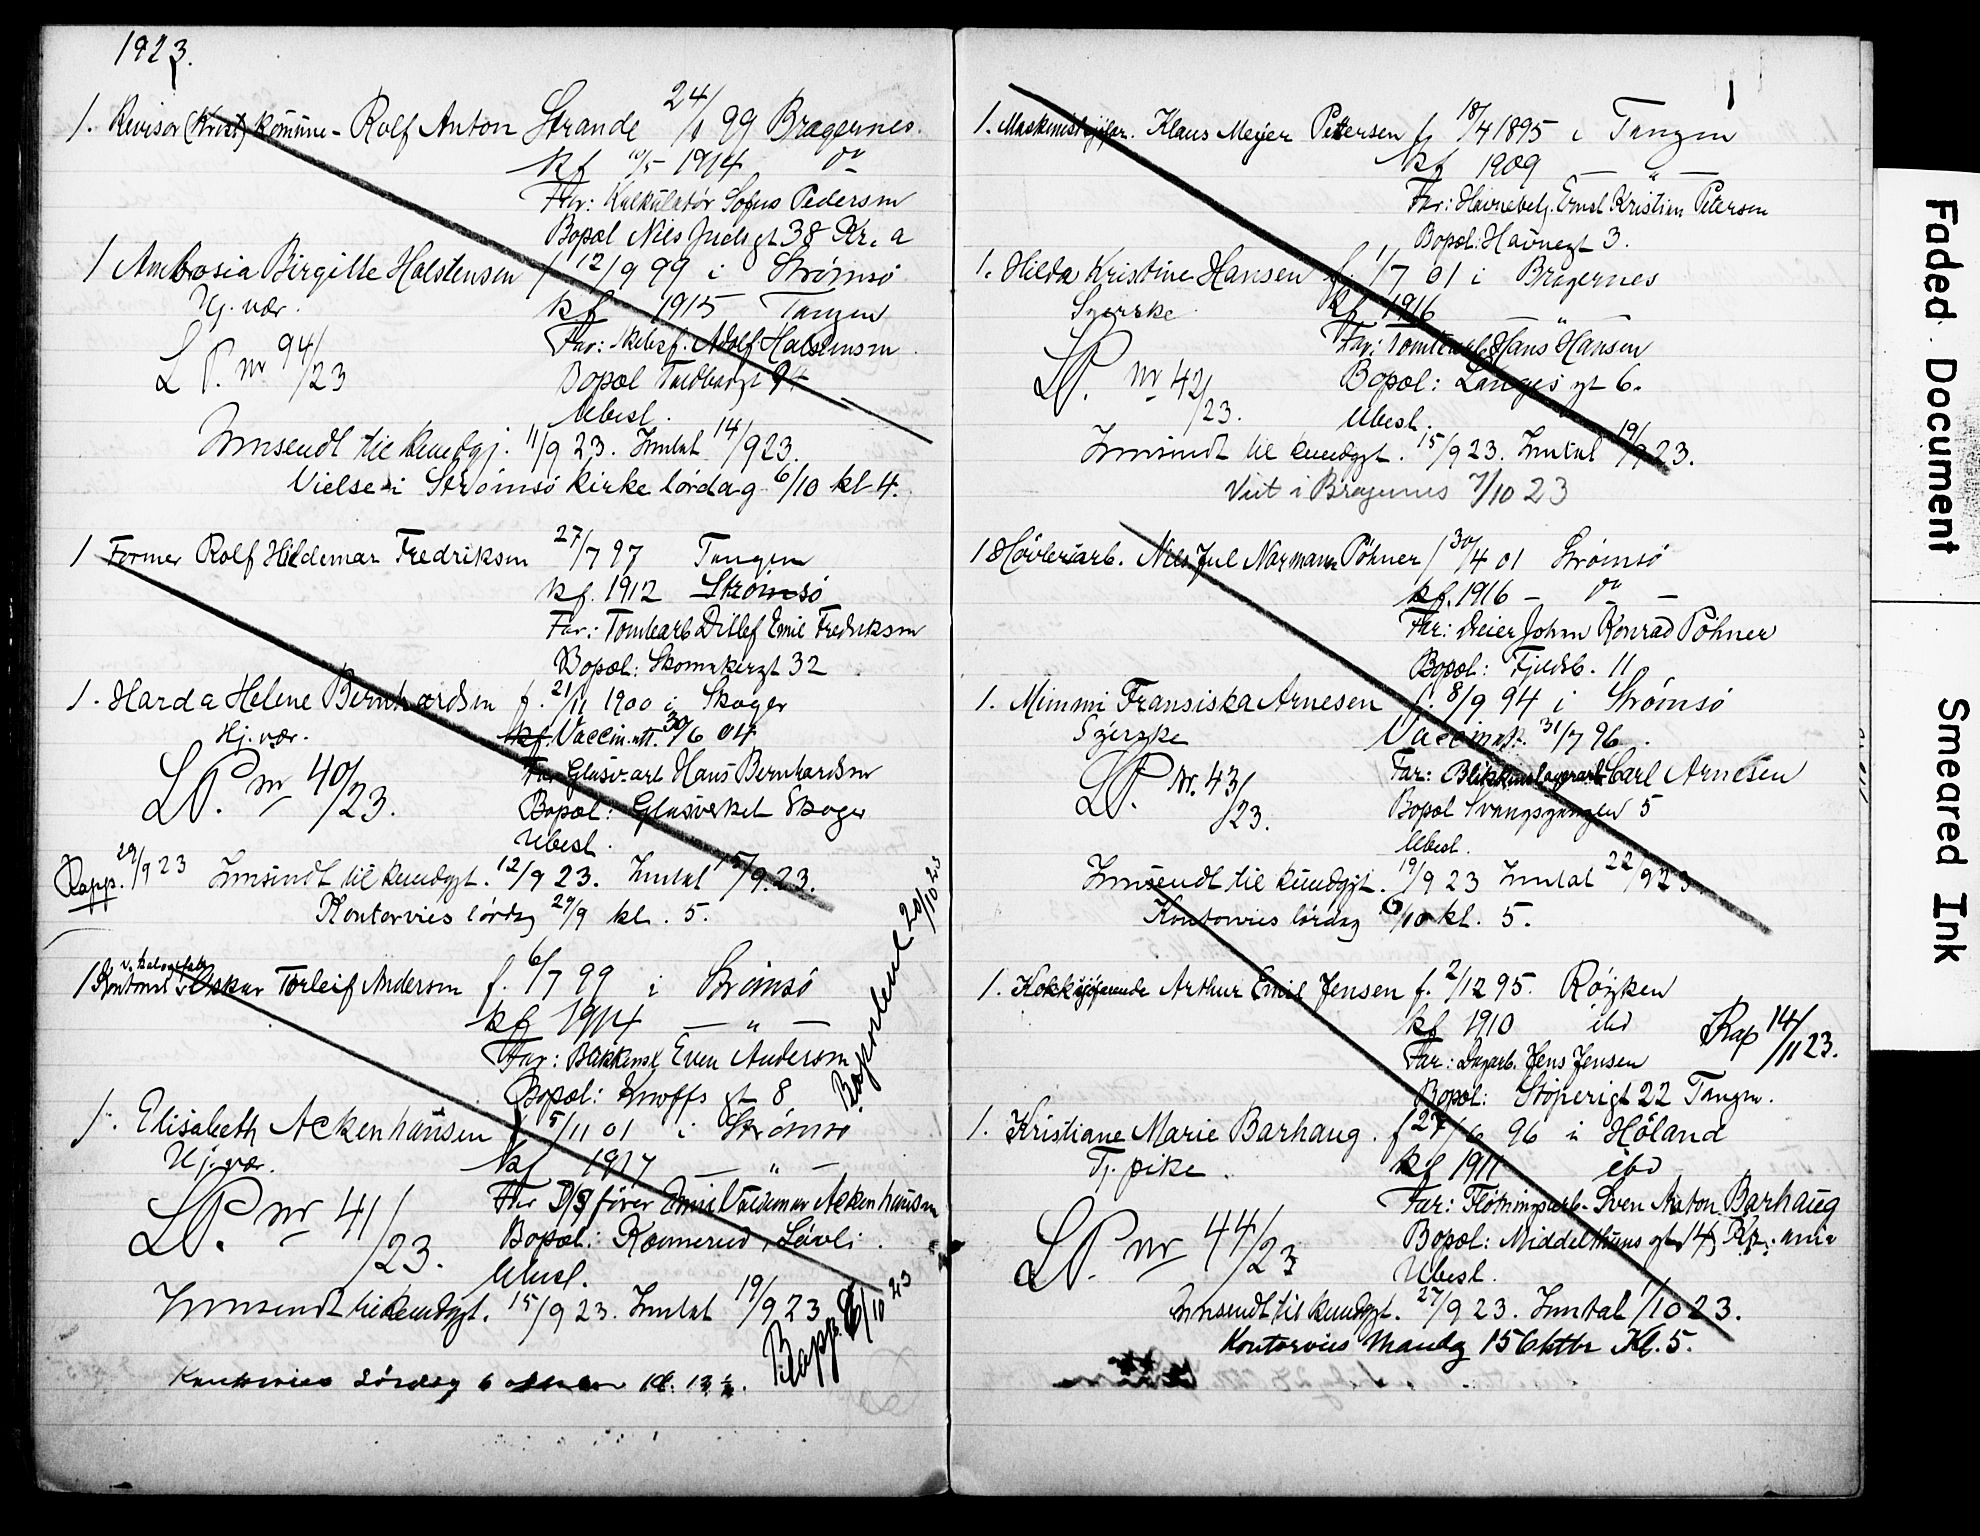 1923.
1. Revisor (Krist) Komune - Rolf Anton Strande 24/1 99 Bragernes.
kf 10/5 1914 do
Far: Kalkulatør Sofus Pedersen
Bopæl Nils Juels gt 38 Kr.a
1 Ambrosia Birgitte Halstensen f 12/9 99 i Strømsø
Hj. vær. kf 1915 Tangen
Far: Skibsf. Adolf Halstensen
L P. nr 94/23 Bopæl Toldbodgt 94
Ubesl.
Innsendt til kundgj. 11/9 23. Inntat 14/9 23.
Vielse i Strømsø kirke lørdag 6/10 kl 4.
1 Former Rolf Hildemar Fredriksen 27/7 97 Tangen
kf. 1912 Strømsø
Far: Tomtearb Ditlef Emil Fredriksen
Bopæl: Skomakergt 32
1. Harda Helene Bernhardsen f. 21/11 1900 i Skoger
Hj. vær. kf. Vaccin. att. 30/6 04
Far Glasv. arb Hans Bernhardsen
LP. nr 40/23. Bopæl: Glasverket Skoger
Ubesl.
Rapp. 29/9 23 Innsendt til kundgjt. 12/9 23. Inntat 15/9. 23.
Kontorvies lørdag 29/9 kl. 5.
1 Kontorist Oskar Torleif Andersen f. 6/7 99 i Strømsø
kf 1914 — " —
Far: Even Andersen
Bopæl: Knoffs gt 8
Rapporteret 20/10 23
1. Elisabeth Ackenhausen f 5/11 01 i Strømsø
Hj. vær. kf 1917 — " —
Far D/S fører Emil Valdemar Ackenhausen
LP. nr 41/23. Bopæl: Konnerud, Løvli.
Ubesl.
Innsendt til kundgjt. 15/9 23. Inntat 19/9 23
Rapp. 6/10 23
Kontorvies Lørdag 6 oktober kl. 13 ½.
1. Maskinistasp. Klaus Meyer Petersen f 18/4 1895 i Tangen
kf 1909 — " —
Far: Havnebetj. Ernst Kristian Petersen
Bopæl: Havnegt 3.
1. Hilda Kristine Hansen f. 1/7 01 i Bragernes
Syerske kf 1916 — " —
Far: Tomtearb Hans Hansen
LP. nr 42/23. Bopæl: Langes gt 6.
Ubesl.
Innsendt til kundgjt. 15/9 23. Inntat 19/9 23.
Viet i Bragernes 7/10 23
1 Høvleriarb. Nils Jul Normann Pöhner f 30/4 01 Strømsø
kf. 1916 — do —
Far: Dreier Johan Konrad Pöhner
Bopæl: Fjeldsb. 11
1. Mimmi Fransiska Arnesen f. 8/9 94 i Strømsø
Syerske Vaccinatt. 31/7 96.
Far: Blikkenslagerarb Carl Arnesen
LP. Nr. 43/23. Bopæl Svangsgangen 5
Ubesl.
Innsendt til kundgjt. 19/9 23 Inntat 22/9 23
Kontorvies lørdag 6/10 kl. 5.
1. Arthur Emil Jensen f. 2/12 95. Røyken
kf 1910 ibd Rap 14/11 23.
Far: Dagarb. Jens Jensen
Bopæl: Støperigt 22 Tangen.
1. Kristiane Marie Barhaug. f 27/6 96 i Höland
Tj. pike. kf 1911 ibd
Far: Fløtningsarb. Sven Anton Barhaug
LP. nr 44/23 Bopæl: Middelthuns gt 14, Kr.ania
Ubesl.
Innsendt til kundgjt. 27/9 23. Inntat 1/10 23.
Kontorvies Mandg 15 Oktbr Kl. 5.
Faded Document
Smeared Ink